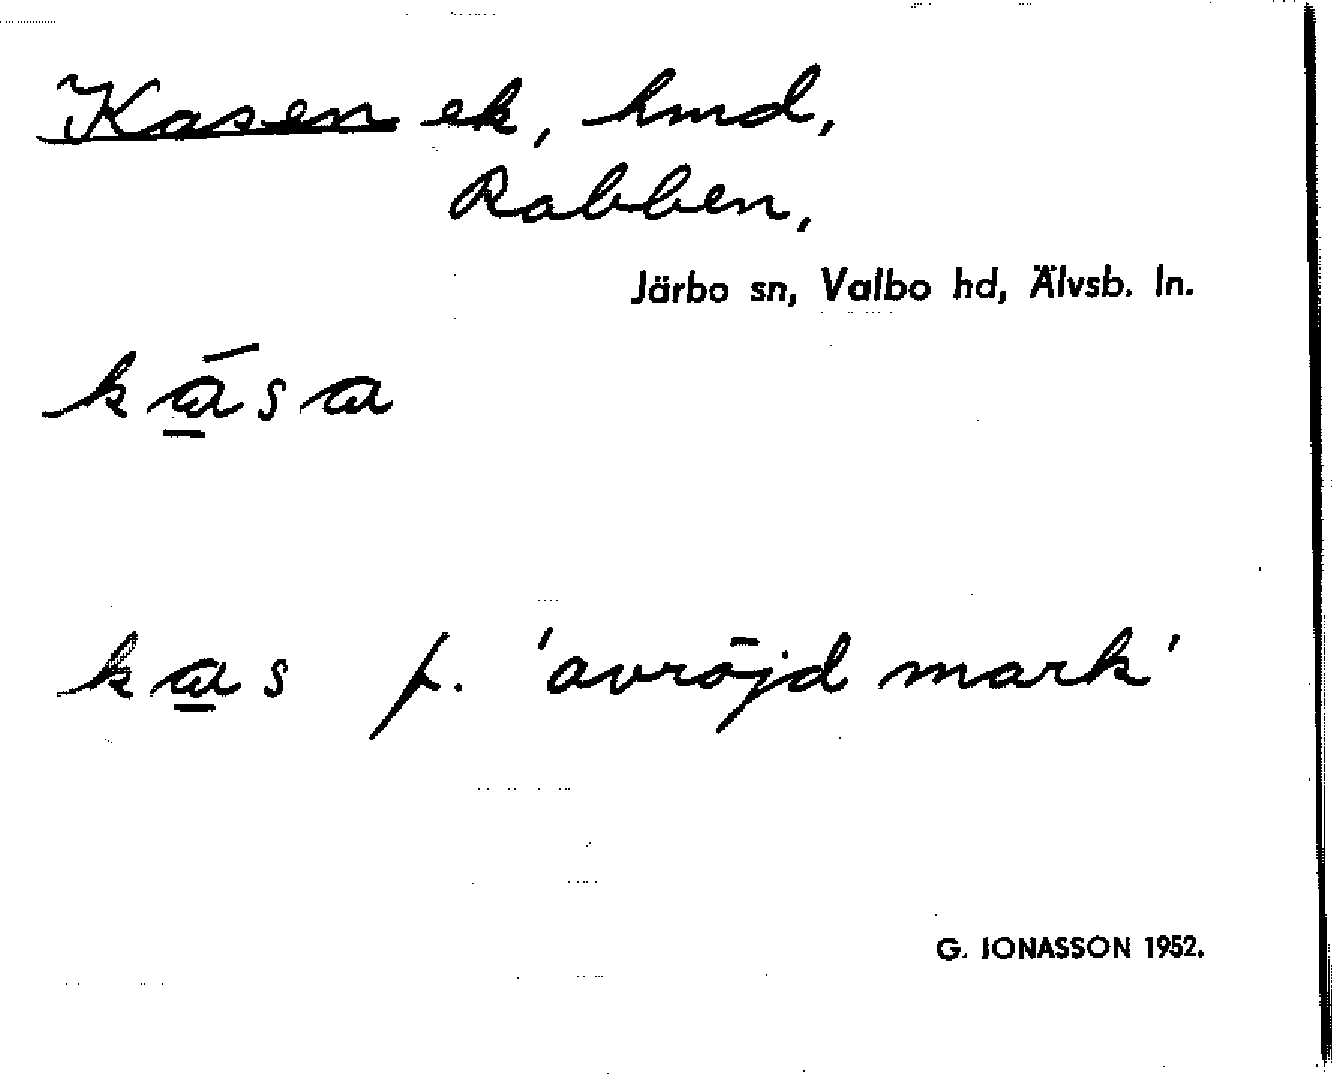 Kasen ek, hmd,
Rabben,
Järbo sn, Valbo hd, Älvsb. ln.
ká̱sa
ka̱s f. 'avröjd mark'
G. JONASSON 1952.